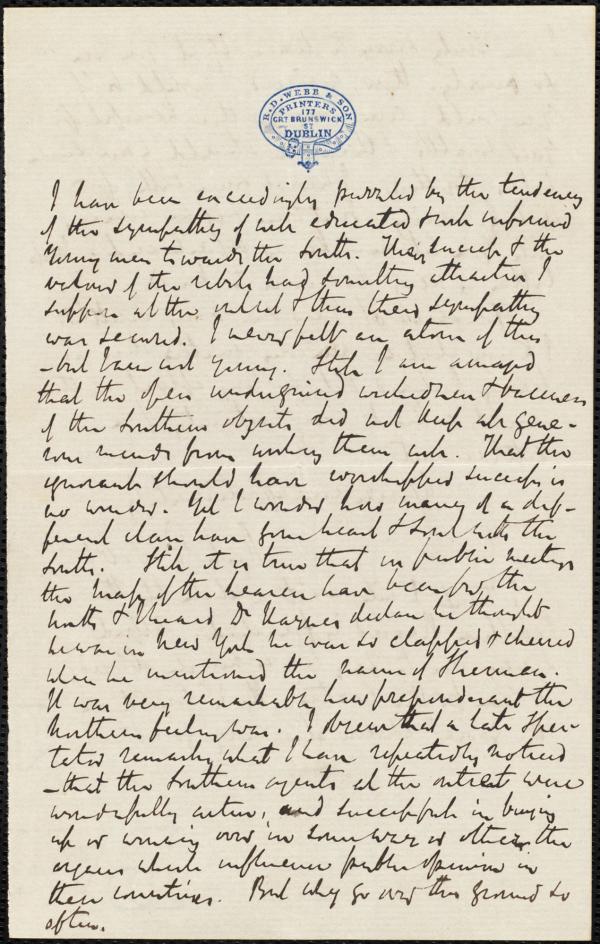 R. D. WEBB & SON
PRINTERS
177
GRT BRUNSWICK
ST
DUBLIN
I have been exceedingly puzzled by the tendency
of the sympathy of well educated & well informed
young men towards the South. Their success & the
valour of the rebels had something attractive I
suppose at the outset & thus their sympathy
was secured. I never felt an atom of this
– but I am not young. Still I am amazed
that the open undisguised wickedness & baseness
of the Southern objects did not keep all gene-
rous minds from wishing them well. That the
ignorant should have worshipped success is
no wonder. Yet I wonder how many of a dif-
ferent class have gone heart & soul with the
South. Still, it is true that in public meetings
the mass of the hearers have been for the
North & I heard Dr Haynes declare he thought
he was in New York he was so clapped & cheered
when he mentioned the name of Sherman.
It was very remarkable how preponderant the
Northern feeling was. I observe that a late Spec-
tator remarks what I have repeatedly noticed
– that the Southern agents at the outset were
wonderfully active, and successful in buying
up or winning over in some way or other, the
organs which influence public opinion in
these countries. But why go over this ground so
often.